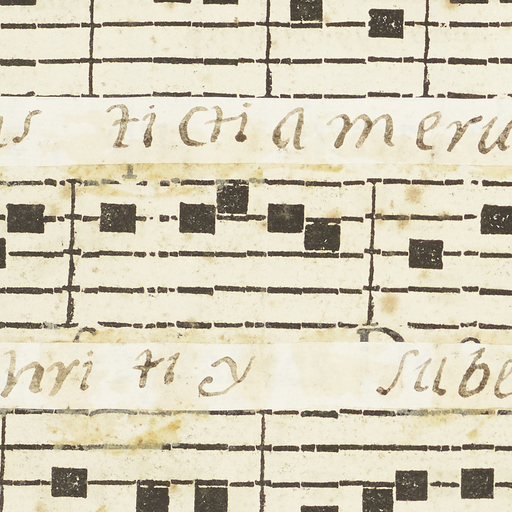 ti cti a meru
hri ti y sube